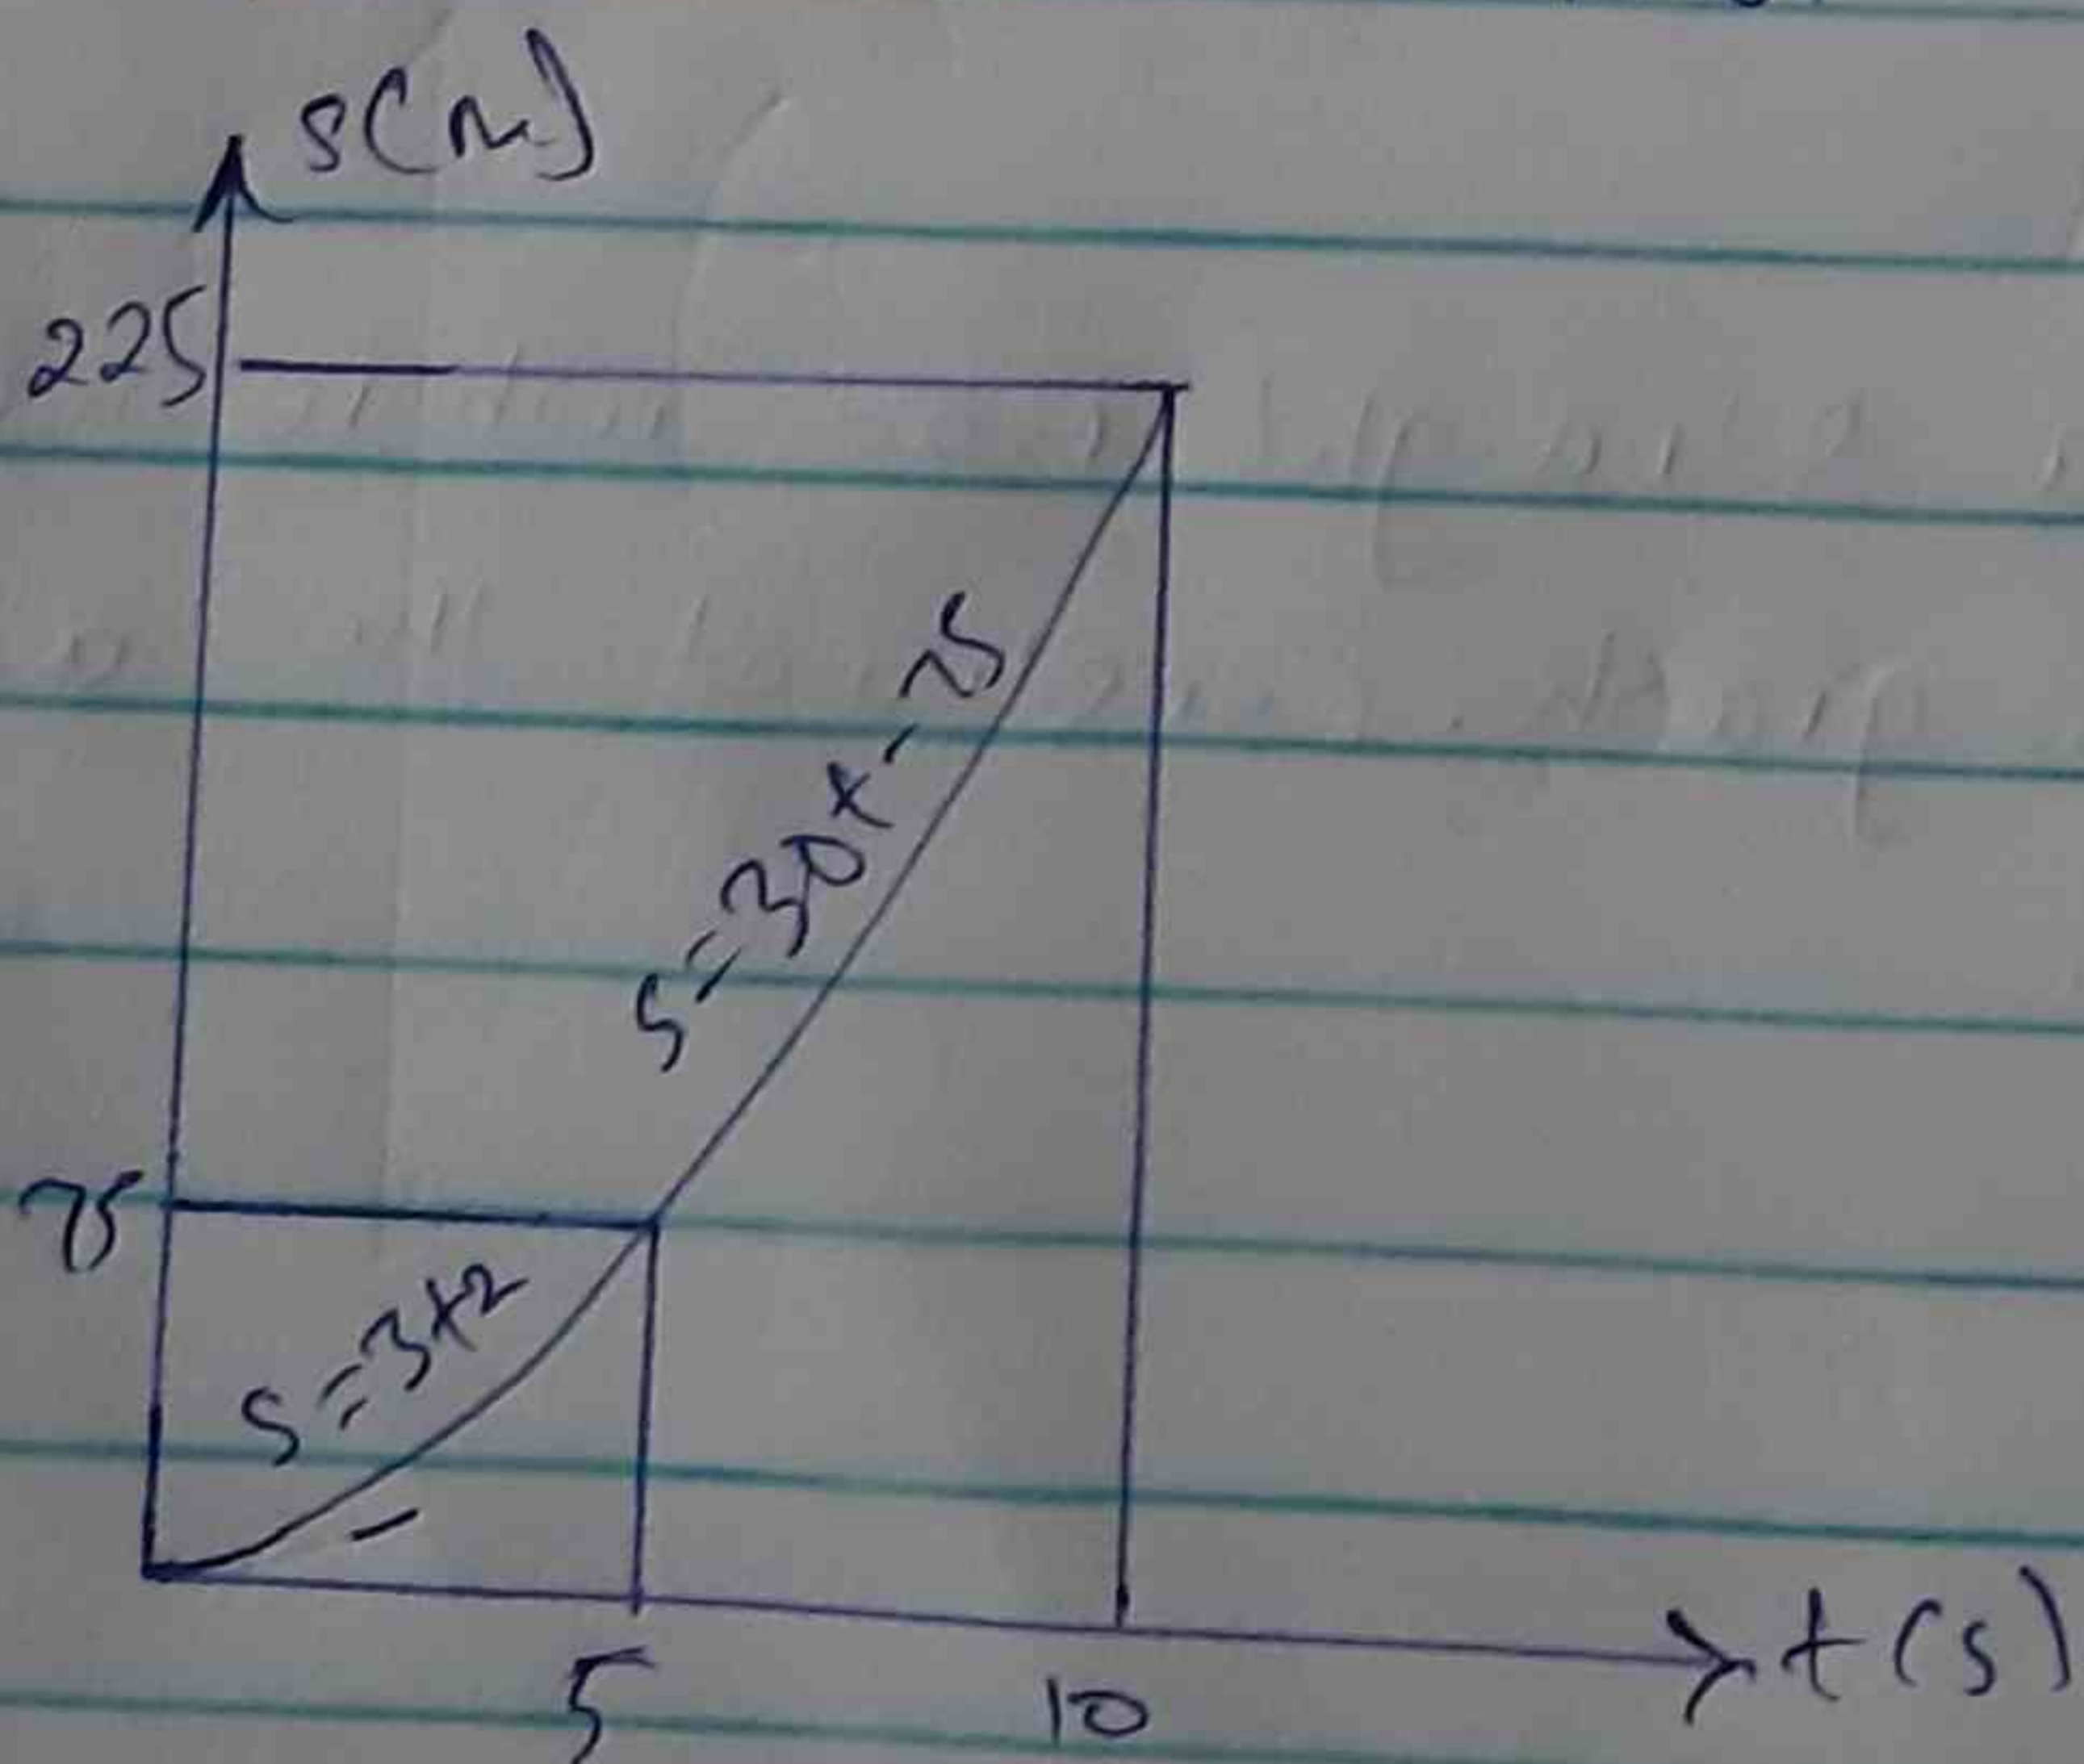 s(m)
225
s=30t-75
75
s=3t2
5
10
t(s)